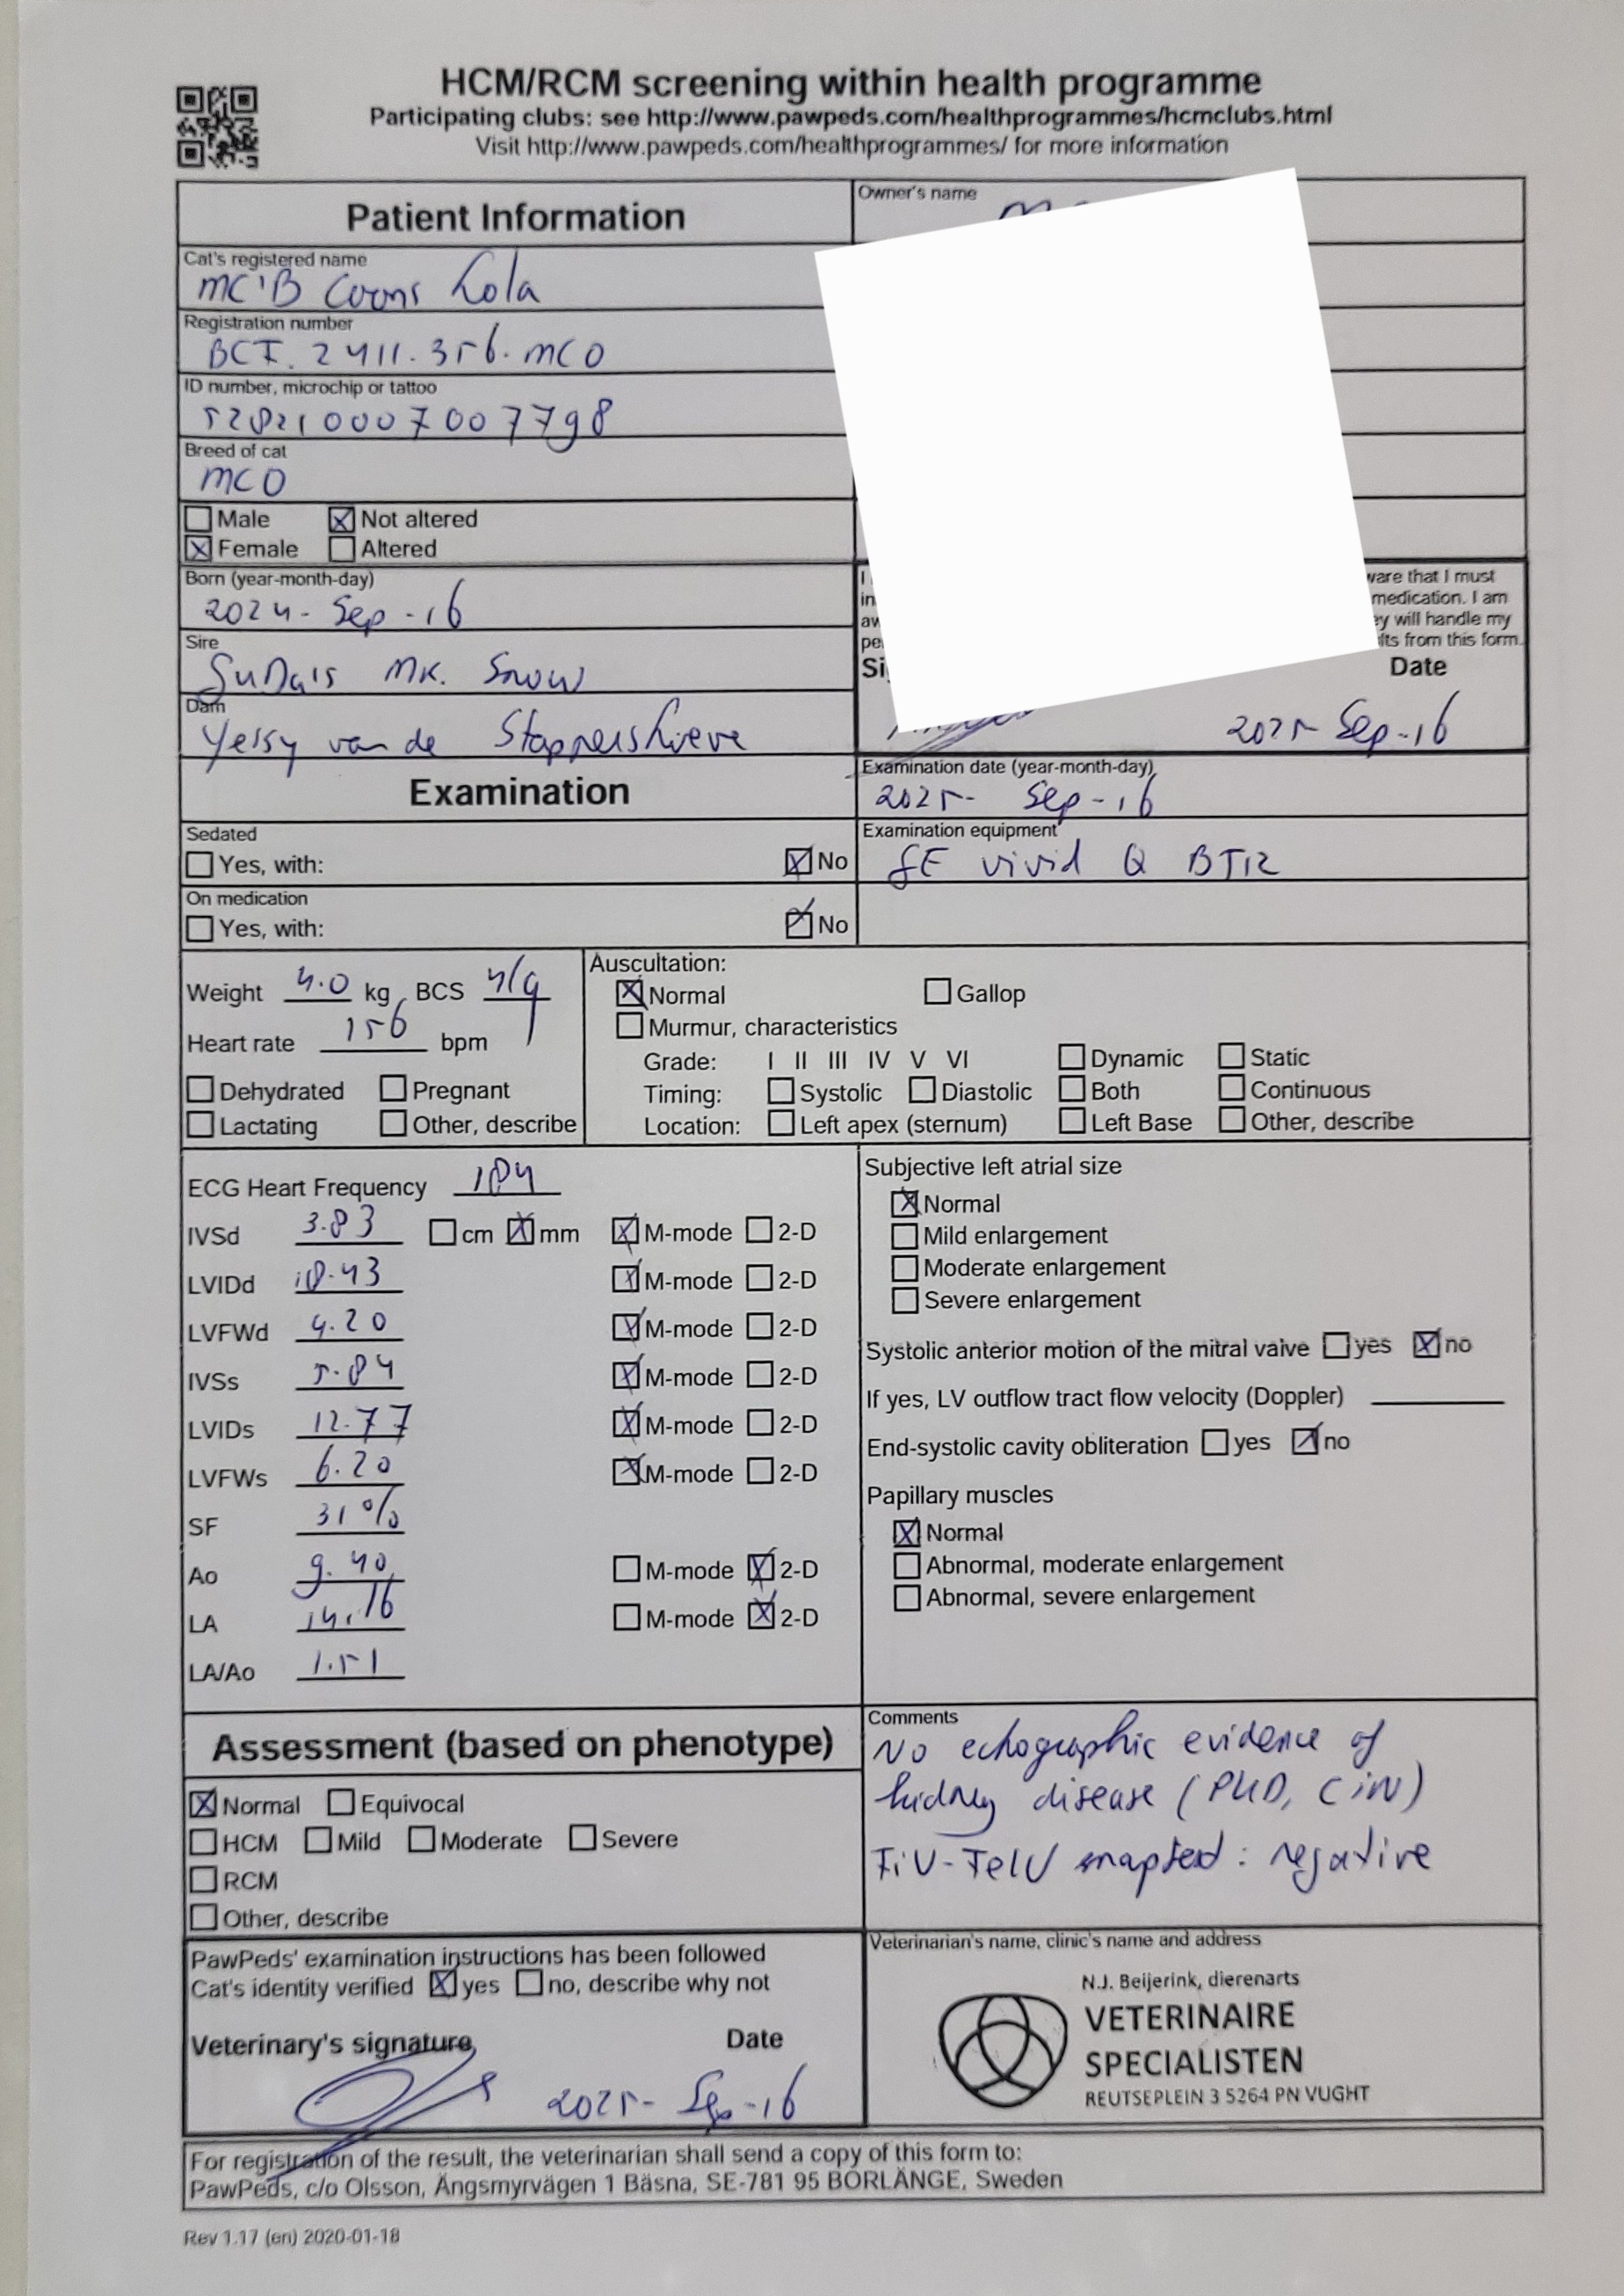 HCM/RCM screening within health programme
Participating clubs: see http://www.pawpeds.com/healthprogrammes/hcmclubs.html
Visit http://www.pawpeds.com/healthprogrammes/ for more information
Patient Information
Owner's name
Cat's registered name
MC'B Coons Lola
Registration number
BCI. 2411.356.MCO
ID number, microchip or tattoo
528210007007798
Breed of cat
MCO
Male Not altered
Female Altered
Born (year-month-day)
2024-Sep-16
Sire
SuDais Mr. Snow
Dam
Yessy van de Stappershoeve
I
ware that I must
in
medication. I am
aw
ey will handle my
pe
lts from this form.
Si
Date
2025-Sep-16
Examination
Examination date (year-month-day)
2025-Sep-16
Sedated
Yes, with: No
Examination equipment
GE vivid Q BT12
On medication
Yes, with: No
Weight 4.0 kg BCS 4/9
Heart rate 156 bpm
Dehydrated Pregnant
Lactating Other, describe
Auscultation:
Normal Gallop
Murmur, characteristics
Grade: I II III IV V VI Dynamic Static
Timing: Systolic Diastolic Both Continuous
Location: Left apex (sternum) Left Base Other, describe
ECG Heart Frequency 184
IVSd 3.83 cm mm M-mode 2-D
LVIDd 18.43 M-mode 2-D
LVFWd 4.20 M-mode 2-D
IVSs 5.84 M-mode 2-D
LVIDs 12.77 M-mode 2-D
LVFWs 6.20 M-mode 2-D
SF 31%
Ao 9.40 M-mode 2-D
LA 14.16 M-mode 2-D
LA/Ao 1.51
Subjective left atrial size
Normal
Mild enlargement
Moderate enlargement
Severe enlargement
Systolic anterior motion of the mitral valve yes no
If yes, LV outflow tract flow velocity (Doppler)
End-systolic cavity obliteration yes no
Papillary muscles
Normal
Abnormal, moderate enlargement
Abnormal, severe enlargement
Assessment (based on phenotype)
Normal Equivocal
HCM Mild Moderate Severe
RCM
Other, describe
Comments
No echographic evidence of
kidney disease (PKD, CIN)
FiV-FelV snaptest: negative
PawPeds' examination instructions has been followed
Cat's identity verified yes no, describe why not
Veterinary's signature Date
2025-Sep-16
Veterinarian's name, clinic's name and address
N.J. Beijerink, dierenarts
VETERINAIRE
SPECIALISTEN
REUTSEPLEIN 3 5264 PN VUGHT
For registration of the result, the veterinarian shall send a copy of this form to:
PawPeds, c/o Olsson, Ängsmyrvägen 1 Bäsna, SE-781 95 BORLÄNGE, Sweden
Rev 1.17 (en) 2020-01-18